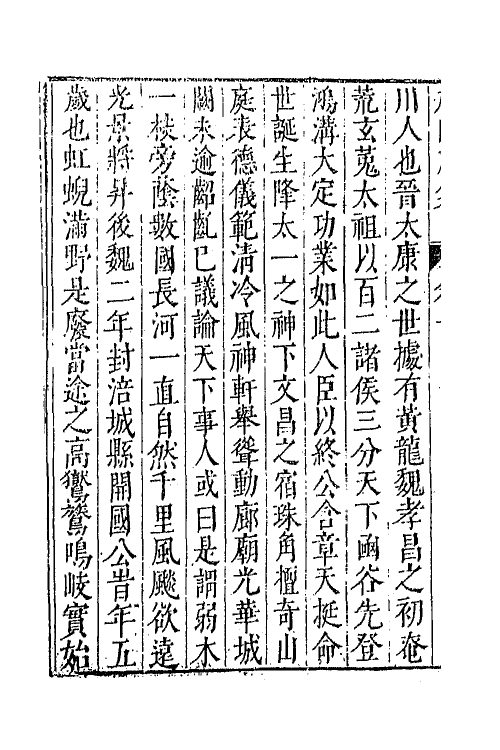 川人也晉太康之世據有黃龍魏孝昌之初奄
荒玄菟太祖以百二諸侯三分天下函谷先登
鴻溝大定功業如此人臣以終公含章天挺命
世誕生降太一之神下文昌之宿珠角擅奇山
庭表德儀範清冷風神軒舉聳動廊廟光華城
闕未逾齠齓已議論天下事人或曰是謂弱木
一枝旁蔭數國長河一直自然千里風飈欲遠
光景將昇後魏二年封涪城縣開國公昔年五
歲也虹蜺滿野是廢當途之高鸑鷟鳴岐實始